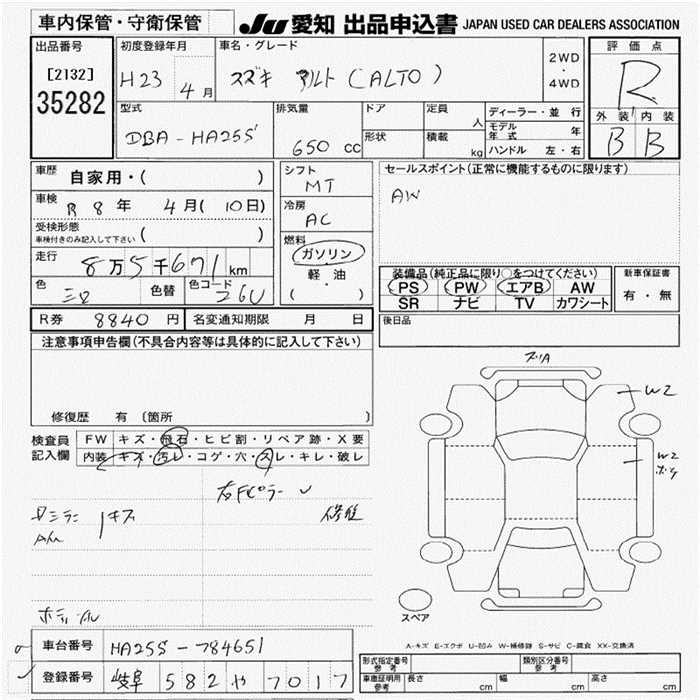 車内保管・守衛保管
JU 愛知 出品申込書 JAPAN USED CAR DEALERS ASSOCIATION
出品番号
[2132]
35282
初度登録年月
H23 4月
車名・グレード
スズキ アルト(ALTO)
2WD
・
4WD
評価点
R
外装 内装
B B
型式
DBA-HA25S
排気量
650 cc
ドア
形状
定員 人
積載 kg
ディーラー・並行
モデル年式 年
ハンドル 左・右
車歴
自家用・( )
車検
R 8年 4月(10日)
受検形態
車検付きのみ記入して下さい ( )
走行
8万5千671km
色
色替
色コード
26U
シフト
MT
冷房
AC
燃料
ガソリン
軽油
( ・ )
セールスポイント(正常に機能するものに限ります)
AW
装備品(純正品に限り○をつけてください)
PS PW エアB AW
SR ナビ TV カワシート
新車保証書
有・無
R券 8840円 名変通知期限 月 日
後日品
注意事項申告欄(不具合内容等は具体的に記入して下さい)
修復歴 有〔箇所 〕
検査員記入欄
FW キズ・飛石・ヒビ割・リペア跡・X要
内装 キズ・汚レ・コゲ・穴・スレ・キレ・破レ
右Fピラー
キズ
修復
W2
W2
スペア
A-キズ E-エクボ U-凹み W-補修跡 S-サビ C-腐食 XX-交換済
車台番号 HA25S-784651
登録番号 岐阜 582 や 7017
形式指定番号 参考
類別区分番号 参考
車庫証明用 参考 長さ cm 幅 cm 高さ cm